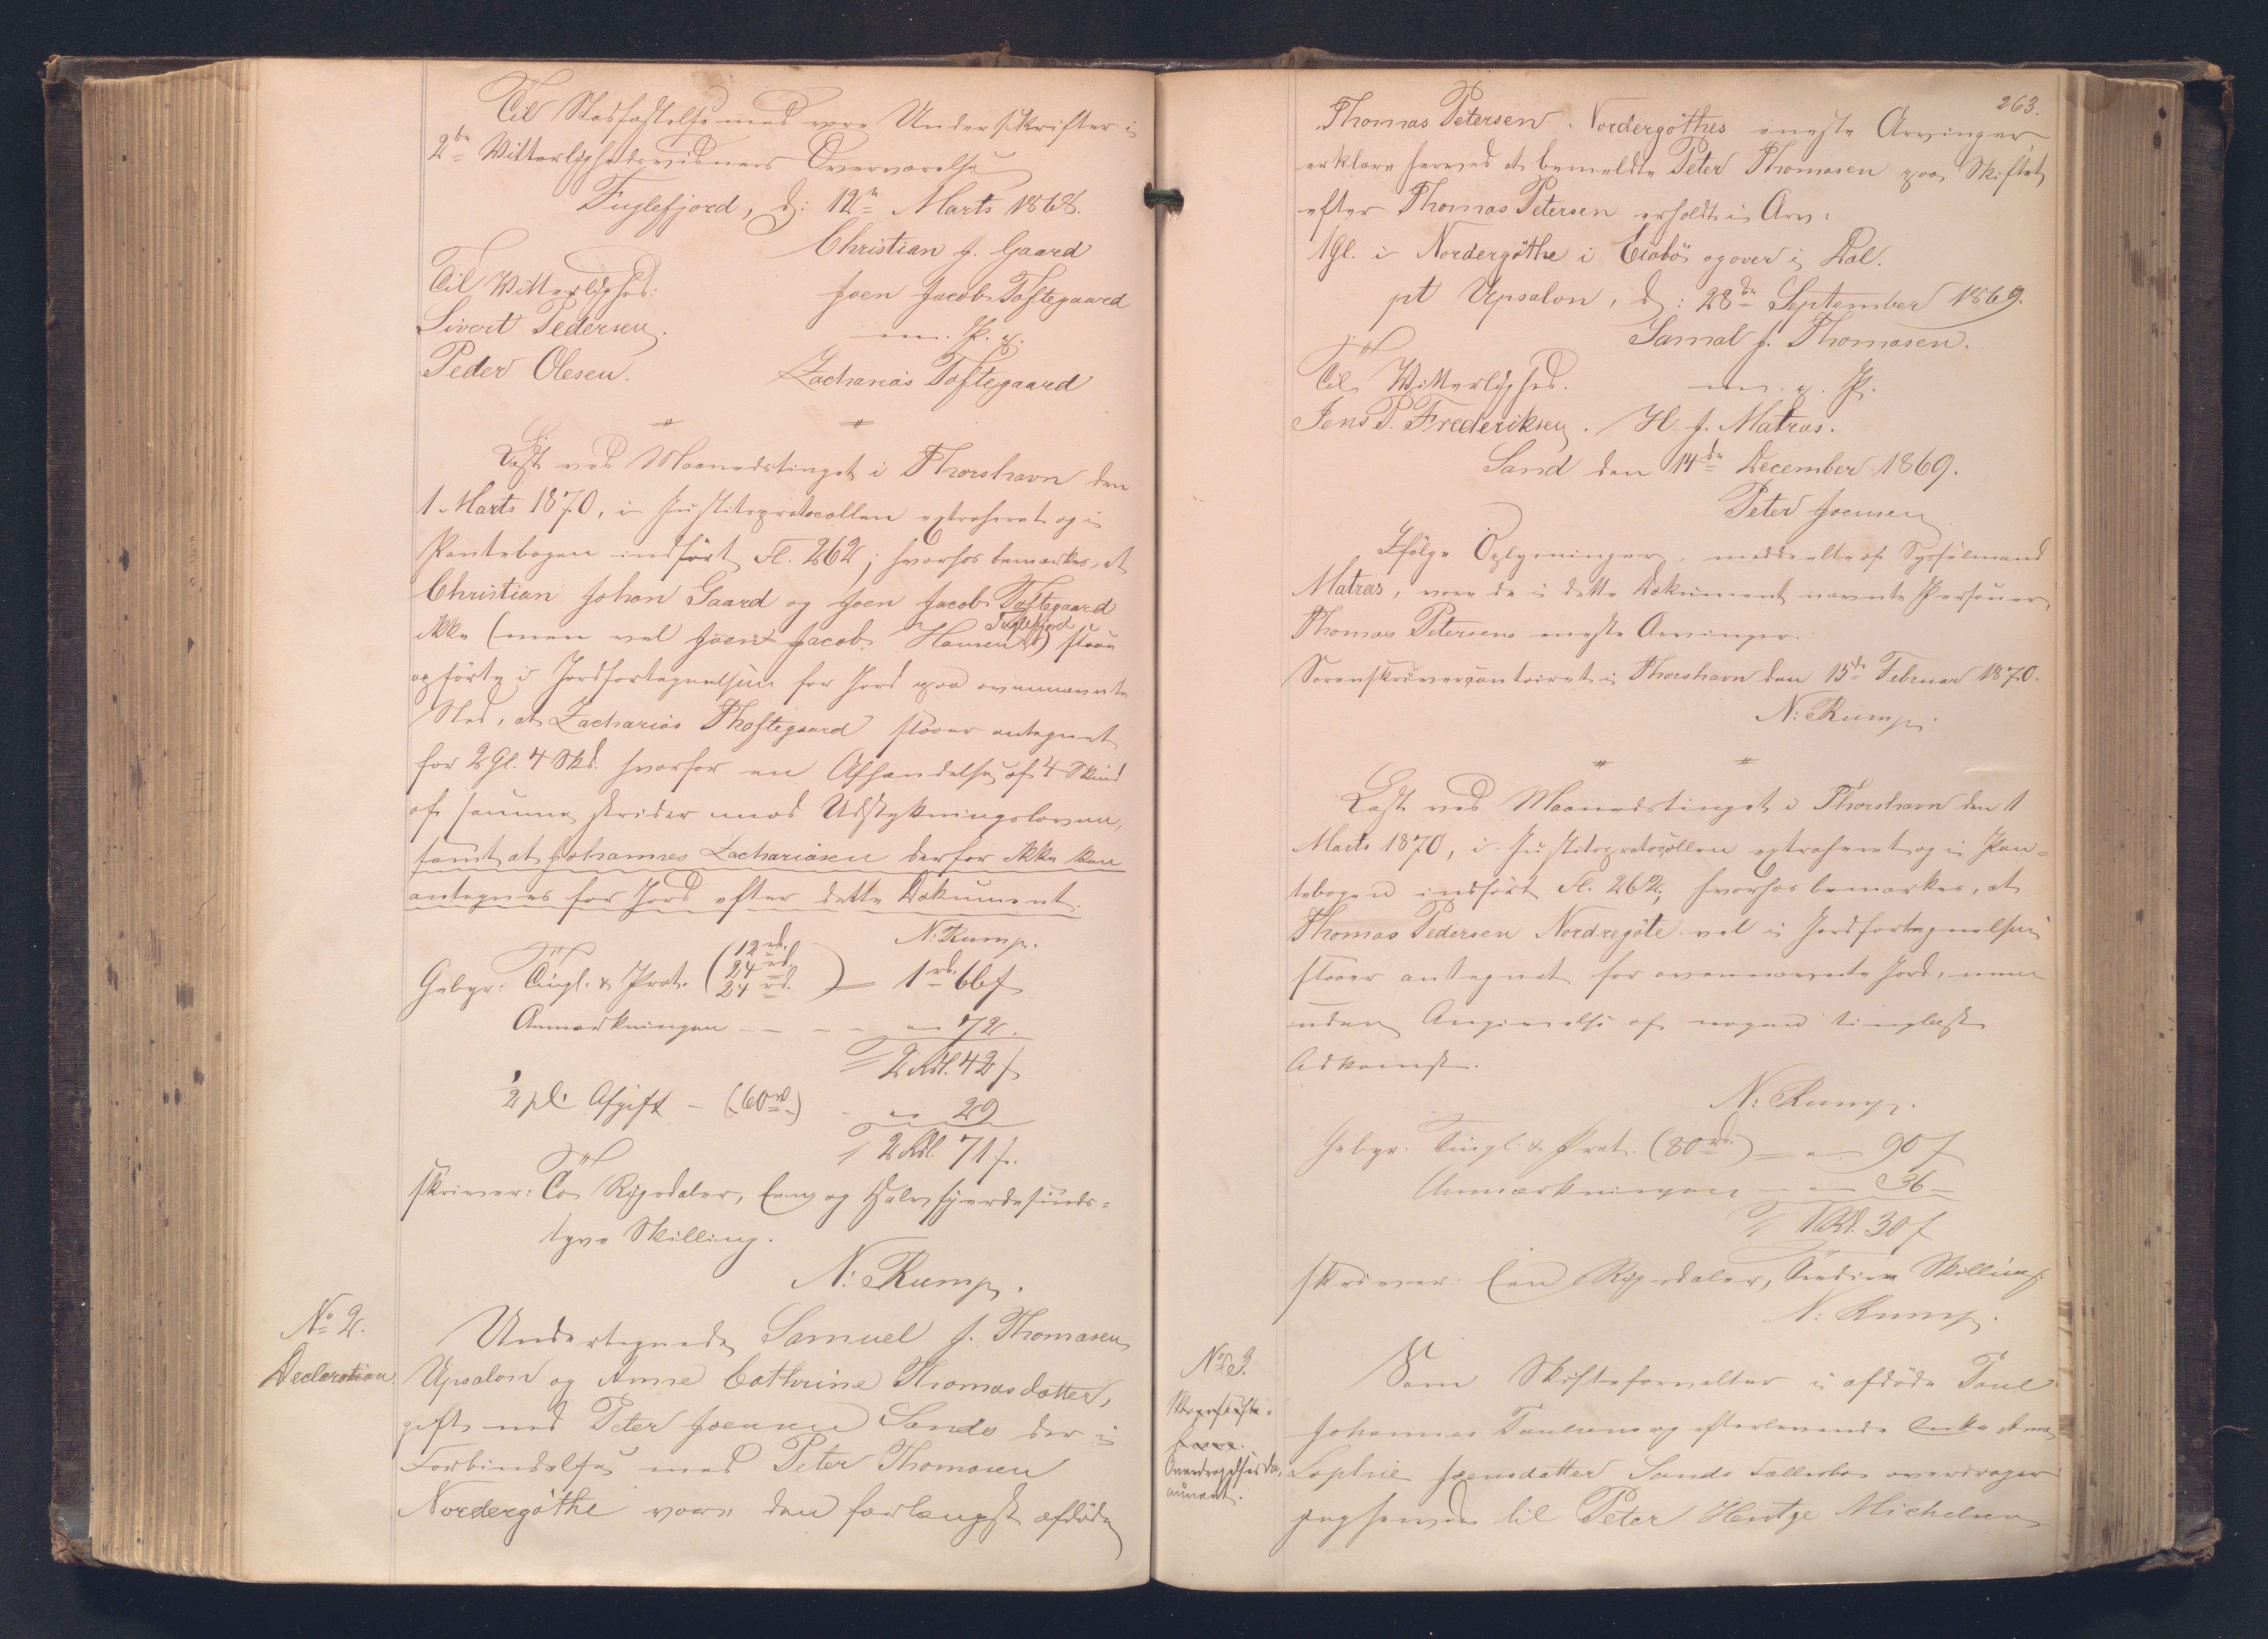 Til Stadfæstelse med vore Underskrifter i
2de Vitterlighedsvidners Overværelse
Fuglefjord, d: 12te Marts 1868.
Christian J. Gaard
Til Vitterlighed:
Joen Jacob Toftegaard
Sivert Pedersen.
m. f. P.
Peder Olesen.
Zacharias Toftegaard
Læst ved Maanedstinget i Thorshavn den
1 Marts 1870, i Justitsprotocollen extraheret og i
Pantebogen indført Fl. 262; hvorhos bemærkes, at
Christian Johan Gaard og Joen Jacob Toftegaard
ikke (men vel Joen Jacob Hansen Fuglefjord) staae
opførte i Jordfortegnelsen for Jord paa ovennævnte
Sted, at Zacharias Thoftegaard staaer antegnet
for 2 Gl. 4 Skd. hvorfor en Afhændelse af 4 Skind
af samme strider mod Udstykningsloven,
samt at Johannes Zachariasen derfor ikke kan
antegnes for Jord efter dette Dokument.
N: Rump.
Gebyr: Tingl. & Prot. (12 rd. 24 rd. 24 rd.) = 1 rd. 66 s
Anmærkningen - - - - " 72.
2 Rdl. 42 s
½ pCt Afgift - (60 rd) - " 29
2 Rdl. 71 s.
skriver: To Rigsdaler, Een og Halvfjerdesinds=
tyve Skilling.
N: Rump.
No 2.
Declaration.
Undertegnede Samuel J. Thomasen
Upsalon og Anne Cathrine Thomasdatter,
gift med Peter Joensen Sands der i
Forbindelse med Peter Thomasen
Nordergöthe vare den forlængst afdøde
263.
Thomas Petersen Nordergöthes eneste Arvinger,
erklære herved at bemeldte Peter Thomasen paa Skiftet
efter Thomas Petersen erholdt i Arv:
1 Gl. i Nordergöthe i Eiabö ogover i Dal.
pt Upsalon, d: 28de September 1869.
Samal J. Thomasen.
Til Vitterlighed.
m. f. P.
Jens P. Frederiksen. H. J. Matras.
Sand den 14de December 1869.
Peter Joensen
Ifølge Oplysninger, meddeelte af Sysselmand
Matras, vare de i dette Dokument nævnte Personer
Thomas Petersens eneste Arvinger.
Sorenskrivercontoiret i Thorshavn den 15de Februar 1870.
N: Rump.
Læst ved Maanedstinget i Thorshavn den 1
Marts 1870, i Justitsprotocollen extraheret og i Pan=
tebogen indført Fl. 262, hvorhos bemærkes, at
Thomas Pedersen Nordregöte vel i Jordfortegnelsen
staaer antegnet for ovennævnte Jord, men
uden Angivelse af nogen tinglæst
Adkomst.
N: Rump.
Gebyr. Tingl. & Prot. (80 rd.) = " 90 s
Anmærkningen - " 36 -
1 Rd. 30 s
skriver: Een Rigsdaler, Tredive Skilling.
N: Rump.
No 3.
Overdragelsesdo=
cument.
Som Skifteforvalter i afdøde Poul
Johannes Poulsens og efterlevende Enke Anne
Sophie Joensdatter Sands Fællesbo overdrager
jeg herved til Peter Hentze Michelsen